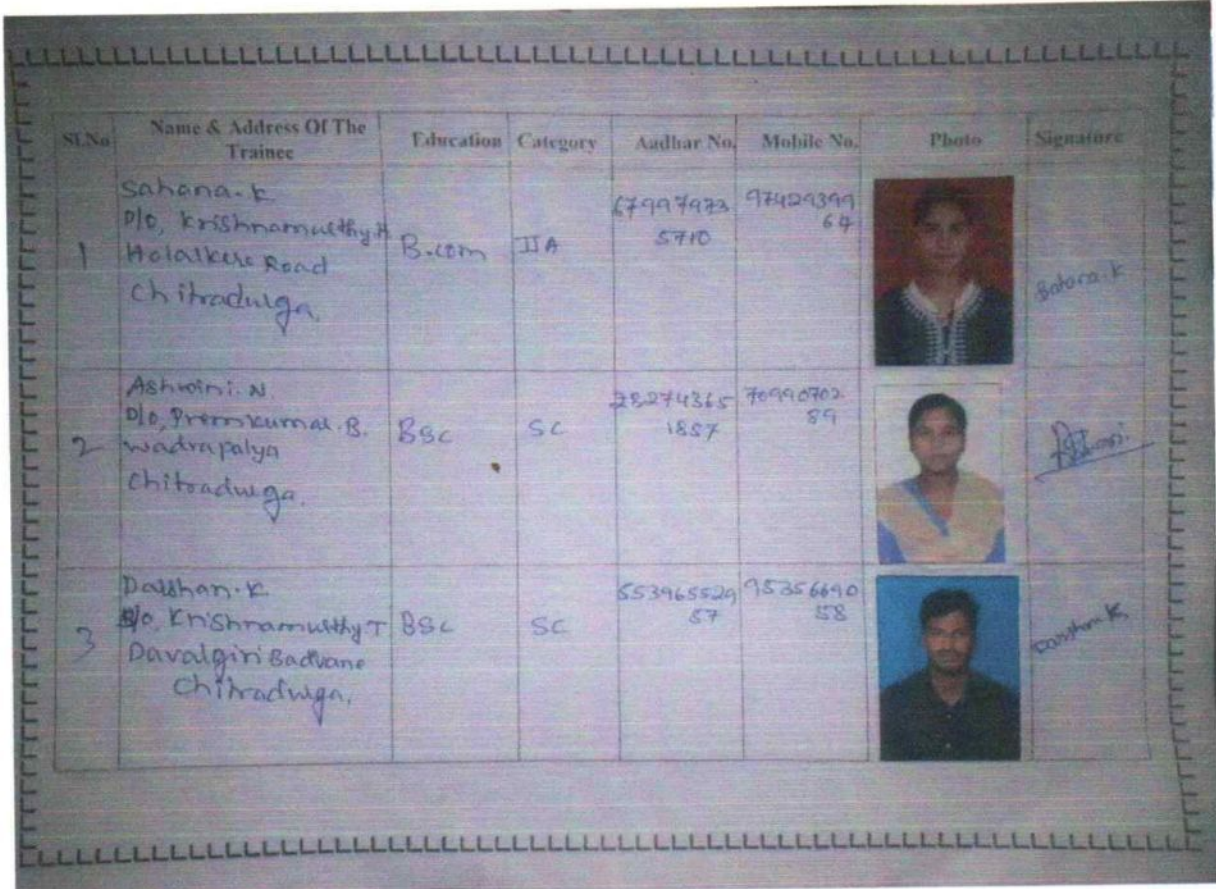 Sl.No
Name & Address Of The
Trainee
Education
Category
Aadhar No.
Mobile No.
Photo
Signature
1
Sahana. K
D/o, Krishnamurthy.H
Holalkere Road
Chitradurga.
B.com
IIA
67997973
5710
97429399
64
Sahana.K
2
Ashwini. N.
D/o, Premkumar. B.
wadrapalya
Chitradurga.
BSc
SC
28274365
1857
70990702
89
Ashwini.
3
Darshan. K
S/o, Krishnamurthy T
Davalgiri Badvane
Chitradurga.
BSc
SC
553965529
57
95356690
58
Darshan K